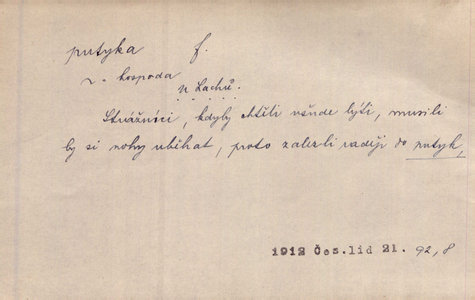 putyka f.
hospoda
U Lachů.
Strážníci, kdyby chtěli všude lýti, musili
by si nohy uběhat, proto zalezli raději do putyk,
1912 Čes.lid 21. 92,8